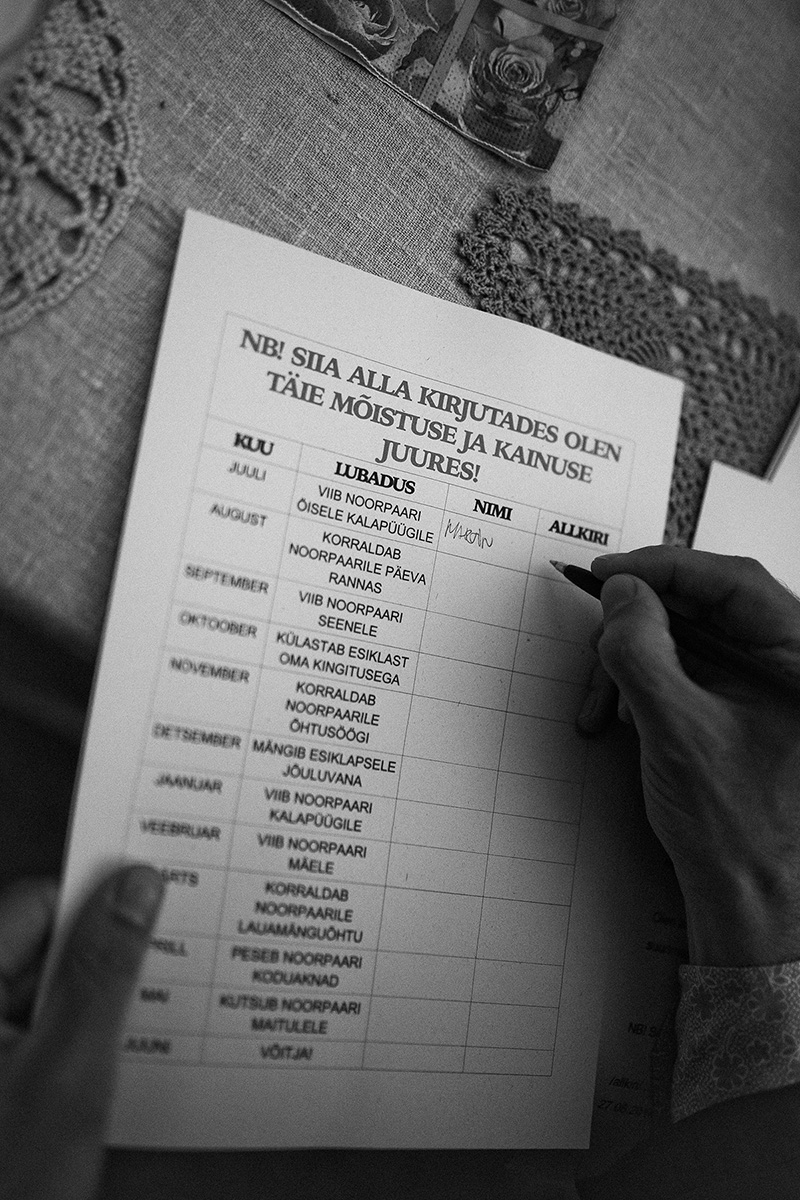 NB! SIIA ALLA KIRJUTADES OLEN
TÄIE MÕISTUSE JA KAINUSE
JUURES!
KUU LUBADUS NIMI ALLKIRI
JUULI VIIB NOORPAARI
ÕISELE KALAPÜÜGILE MARTIN
AUGUST KORRALDAB
NOORPAARILE PÄEVA
RANNAS
SEPTEMBER VIIB NOORPAARI
SEENELE
OKTOOBER KÜLASTAB ESIKLAST
OMA KINGITUSEGA
NOVEMBER KORRALDAB
NOORPAARILE
ÕHTUSÖÖGI
DETSEMBER MÄNGIB ESIKLAPSELE
JÕULUVANA
JAANUAR VIIB NOORPAARI
KALAPÜÜGILE
VEEBRUAR VIIB NOORPAARI
MÄELE
ARTS KORRALDAB
NOORPAARILE
LAUAMÄNGUÕHTU
PRILL PESEB NOORPAARI
KODUAKNAD
MAI KUTSUB NOORPAARI
MAITULELE
JUUNI VÕITJA!
NB!